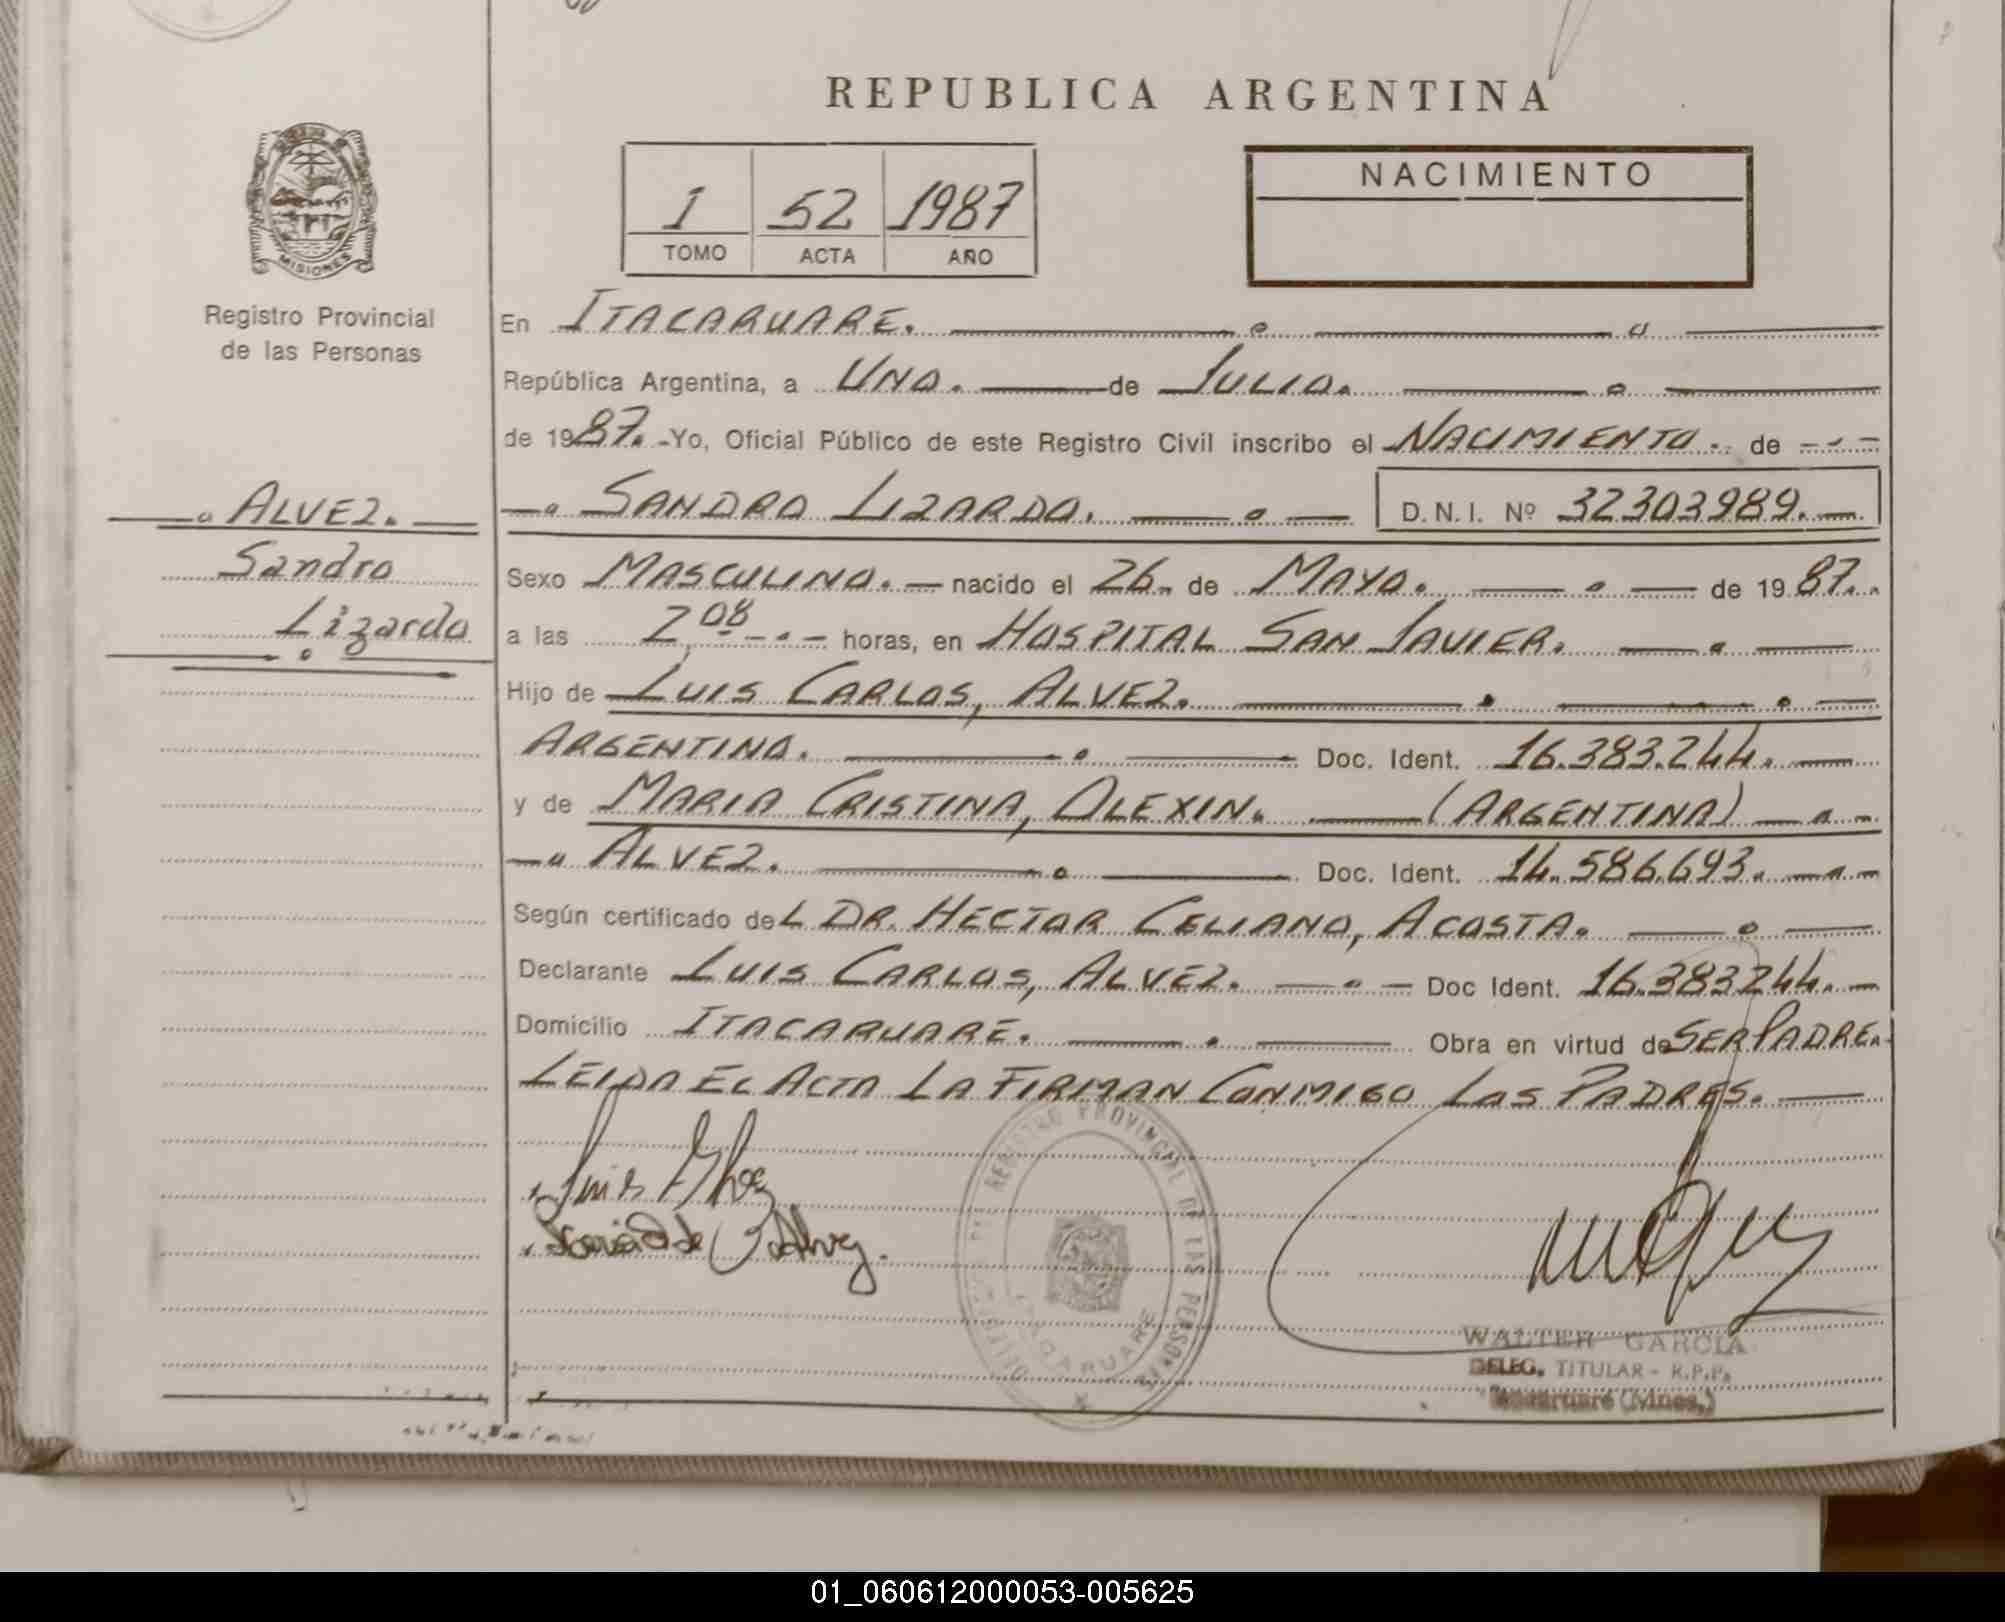 REPUBLICA ARGENTINA
MISIONES
Registro Provincial
de las Personas
1 52 1987
TOMO ACTA AÑO
NACIMIENTO
En ITACARUARE.
República Argentina, a UNO. de JULIO.
de 1987. Yo, Oficial Público de este Registro Civil inscribo el NACIMIENTO. de
ALVEZ.
Sandro
Lizardo
SANDRO LIZARDO. D.N.I. Nº 32303989.
Sexo MASCULINO. nacido el 26 de MAYO. de 1987.
a las 7,08 horas, en HOSPITAL SAN JAVIER.
Hijo de LUIS CARLOS, ALVEZ.
ARGENTINO. Doc. Ident. 16.383.244.
y de MARIA CRISTINA, OLEXIN. (ARGENTINA)
ALVEZ. Doc. Ident. 14.586.693.
Según certificado deL DR. HECTOR CELIANO, ACOSTA.
Declarante LUIS CARLOS, ALVEZ. Doc Ident. 16.383244.
Domicilio ITACARUARE. Obra en virtud de SER PADRE.
LEIDA EL ACTA LA FIRMAN CONMIGO LOS PADRES.
Luis Alvez
REGISTRO PROVINCIAL DE LAS PERSONAS
ITACARUARE
WALTER GARCIA
DELEG. TITULAR - R.P.P.
Itacaruaré (Mnes.)
01_060612000053-005625